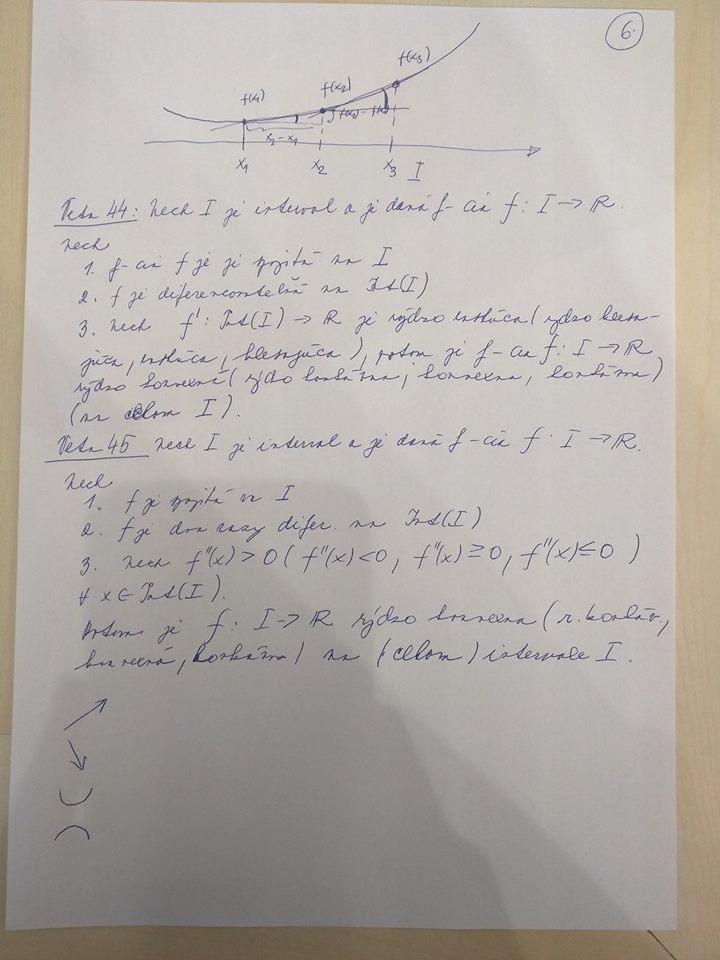 6.
f(x₁) f(x₂) f(x₃)
x₂ - x₁
x₁ x₂ x₃ I
Veta 44: Nech I je interval a je daná f-cia f: I → R.
Nech
1. f-cia f je je spojitá na I
2. f je diferencovateľná na Int(I)
3. Nech f': Int(I) → R je rýdzo rastúca (rýdzo klesa-
júca, rastúca, klesajúca), potom je f-cia f: I → R
rýdzo konvexná (rýdzo konkávna, konvexna, konkávna)
(na celom I).
Veta 45 Nech I je interval a je daná f-cia f: I → R.
Nech
1. f je spojitá na I
2. f je dva razy difer. na Int(I)
3. Nech f''(x) > 0 (f''(x) < 0, f''(x) ≥ 0, f''(x) ≤ 0)
∀ x ∈ Int(I).
Potom je f: I → R rýdzo konvexna (r. konkáv.,
konvexná, konkávna) na (celom) intervale I.